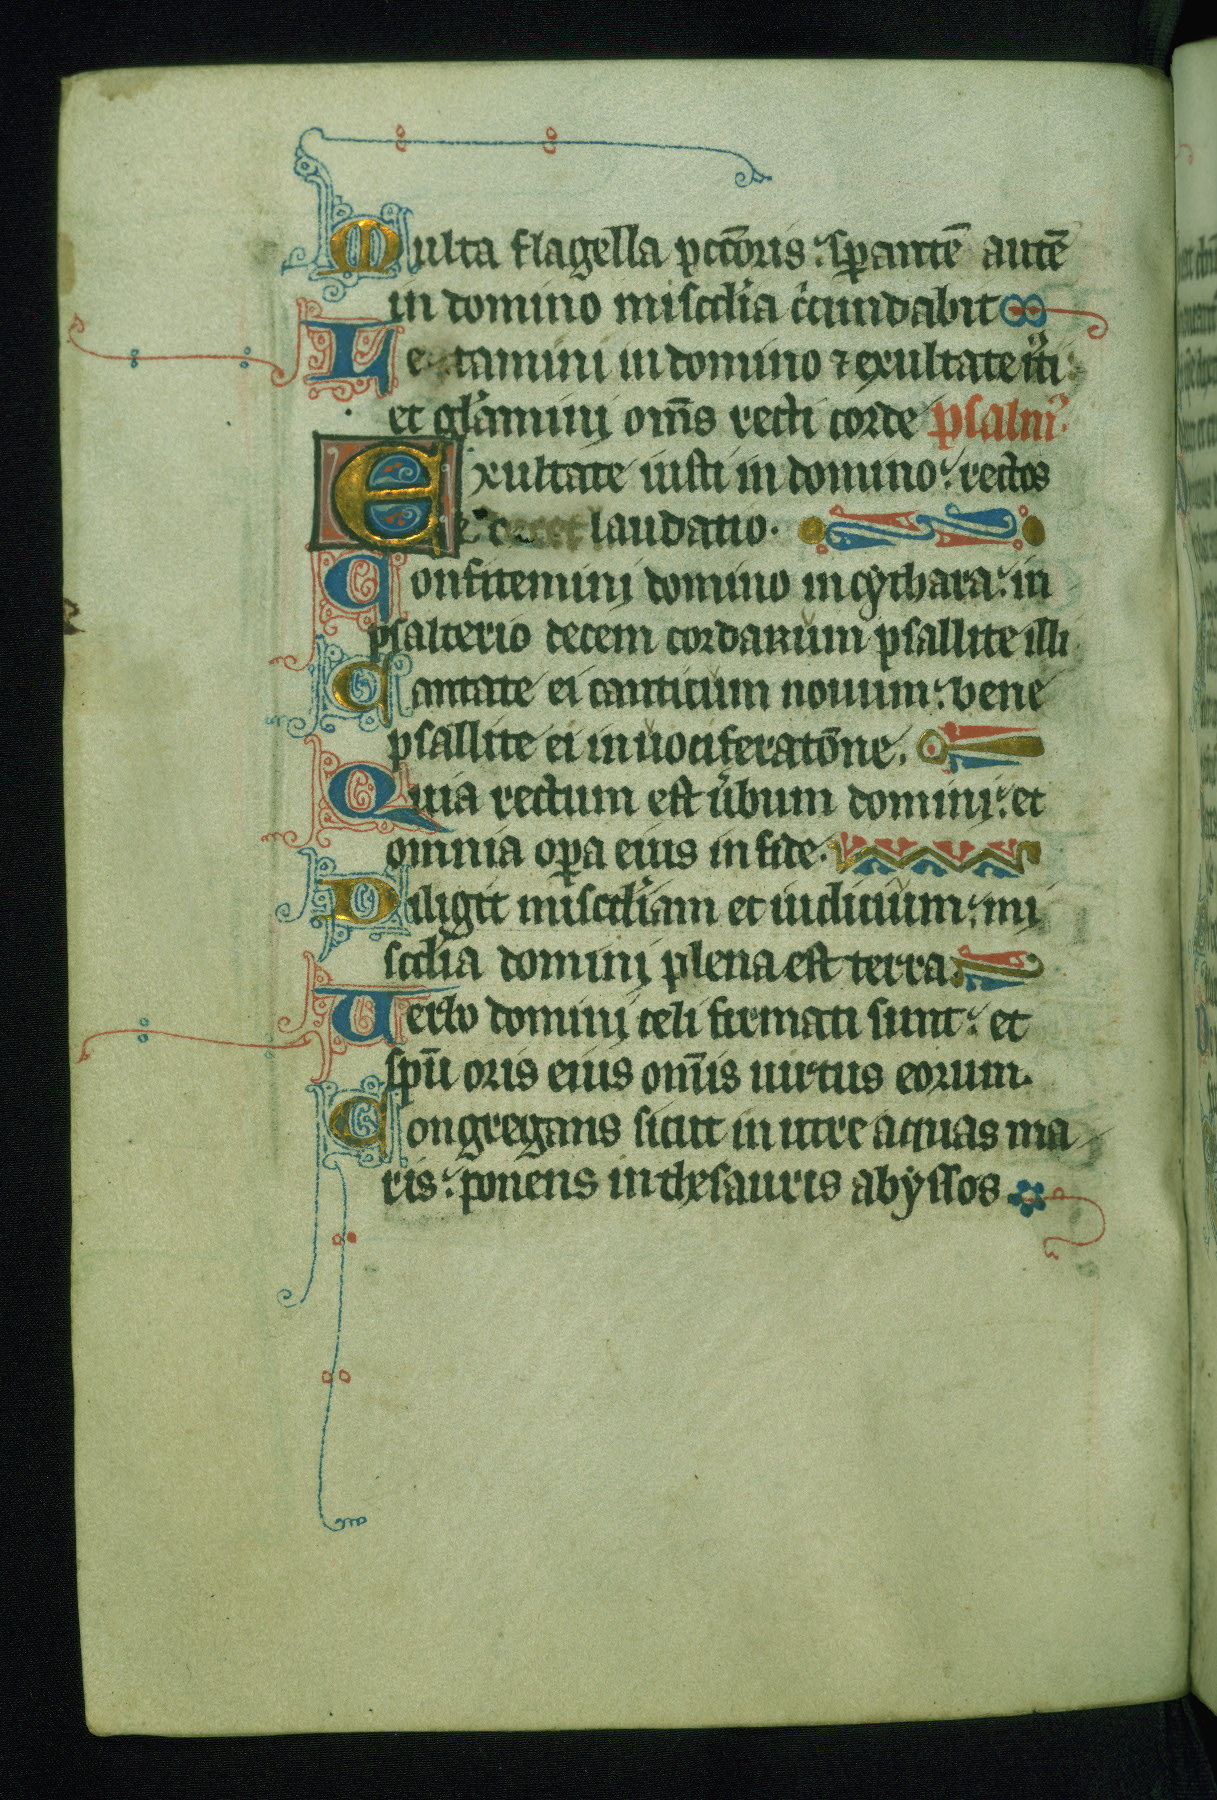 Multa flagella pctõris: sꝑantẽ autẽ
in domino mis̃cdia cͥcundabit
Le tamini in domino ⁊ exultate iͧsti:
et gl̃amini om̃s recti corde psalmꝰ.
Exultate iusti in domino: rectos
decet laudatio.
Confitemini domino in cythara: in
psalterio decem cordarum psallite illi
Cantate ei canticum nouum: bene
psallite ei in uociferatõne.
Quia rectum est ũbum domini: et
omnia oꝑa eius in fide.
Diligit mis̃cdiam et iudicium: mi
s̃cdia domini plena est terra.
Uerbo domini celi firmati sunt: et
sp̃u oris eius om̃is uirtus eorum.
Congregans sicut in utre aquas ma
ris: ponens in thesauris abyssos.